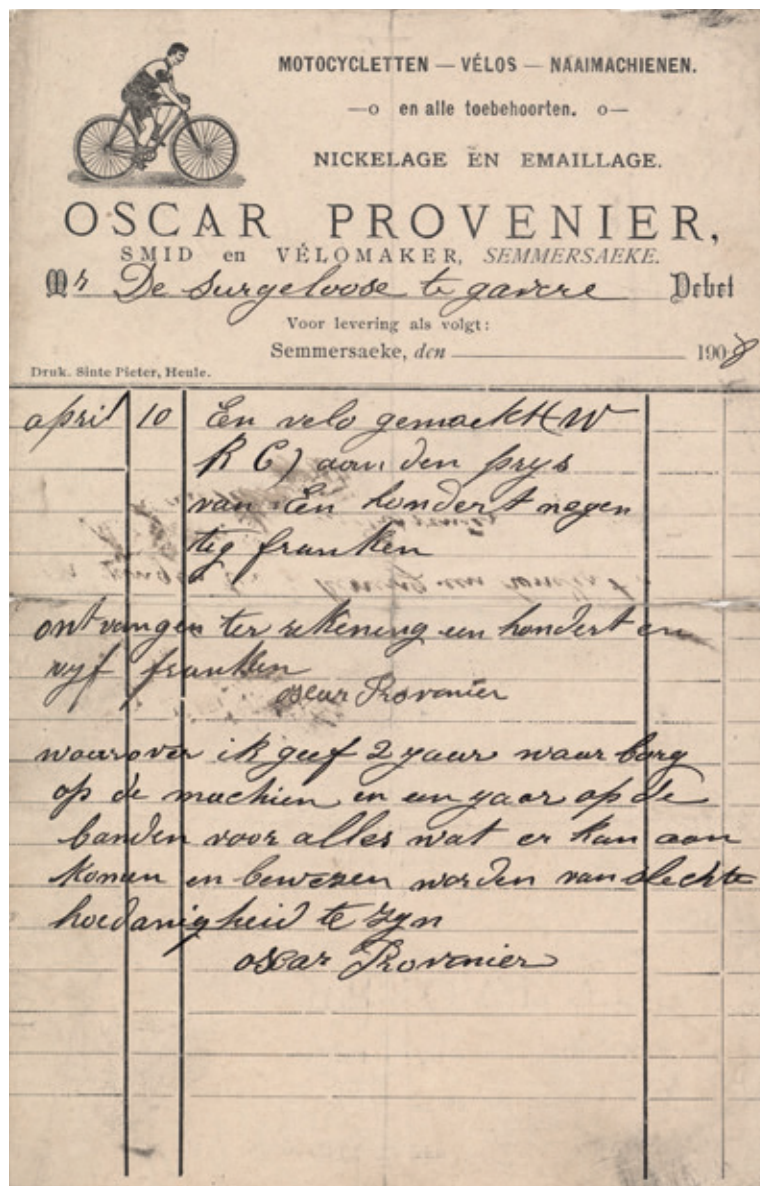 MOTOCYCLETTEN — VÉLOS — NAAIMACHIENEN.
—o en alle toebehoorten. o—
NICKELAGE EN EMAILLAGE.
OSCAR PROVENIER,
SMID en VÉLOMAKER, SEMMERSAEKE.
Mr De Surgeloose te gavere Debet
Voor levering als volgt:
Semmersaeke, den 1908
Druk. Sinte Pieter, Heule.
april 10 En velo gemaekt (W
R C) aan den prys
van Een hondert negen
tig franken
ontvangen ter rekening een hondert en
vyf franken
oscar Provenier
waarover ik geef 2 yaar waarborg
op de machien en een yaar op de
banden voor alles wat er kan aan
komen en bewezen worden van slechte
hoedanigheid te zyn
oscar Provenier